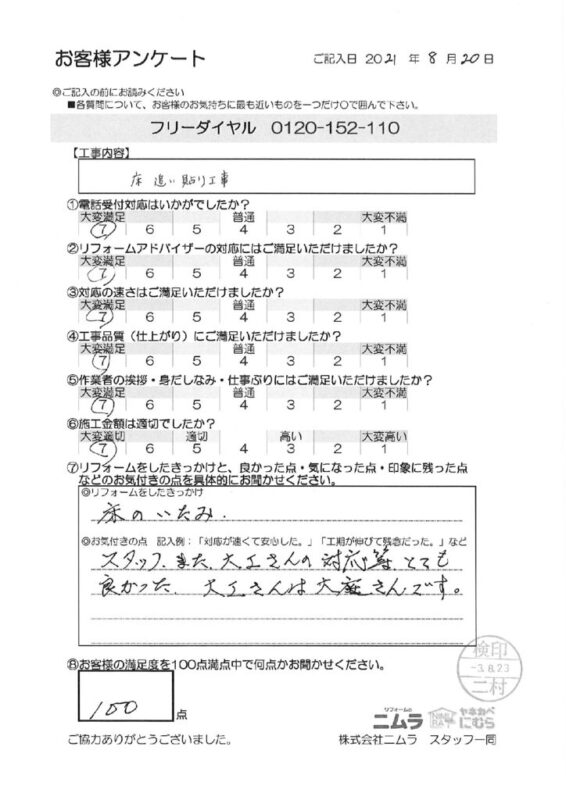 お客様アンケート
ご記入日 2021 年 8 月 20 日
◎ご記入の前にお読みください
■各質問について、お客様のお気持ちに最も近いものを一つだけ○で囲んで下さい。
フリーダイヤル 0120-152-110
【工事内容】
床 追い貼り工事
①電話受付対応はいかがでしたか？
大変満足 普通 大変不満
7 6 5 4 3 2 1
②リフォームアドバイザーの対応にはご満足いただけましたか？
大変満足 普通 大変不満
7 6 5 4 3 2 1
③対応の速さはご満足いただけましたか？
大変満足 普通 大変不満
7 6 5 4 3 2 1
④工事品質（仕上がり）にご満足いただけましたか？
大変満足 普通 大変不満
7 6 5 4 3 2 1
⑤作業者の挨拶・身だしなみ・仕事ぶりにはご満足いただけましたか？
大変満足 普通 大変不満
7 6 5 4 3 2 1
⑥施工金額は適切でしたか？
大変適切 適切 高い 大変高い
7 6 5 4 3 2 1
⑦リフォームをしたきっかけと、良かった点・気になった点・印象に残った点
などのお気付きの点を具体的にお聞かせください。
◎リフォームをしたきっかけ
床のいたみ.
◎お気付きの点 記入例：「対応が速くて安心した。」「工期が伸びて残念だった。」など
スタッフ、また、大工さんの対応等、とても
良かった. 大工さんは大庭さんです。
⑧お客様の満足度を100点満点中で何点かお聞かせください。
検印
-3.8.23
二村
100 点
リフォームの
ニムラ
ヤネカベ
にむら
ご協力ありがとうございました。
株式会社ニムラ スタッフ一同